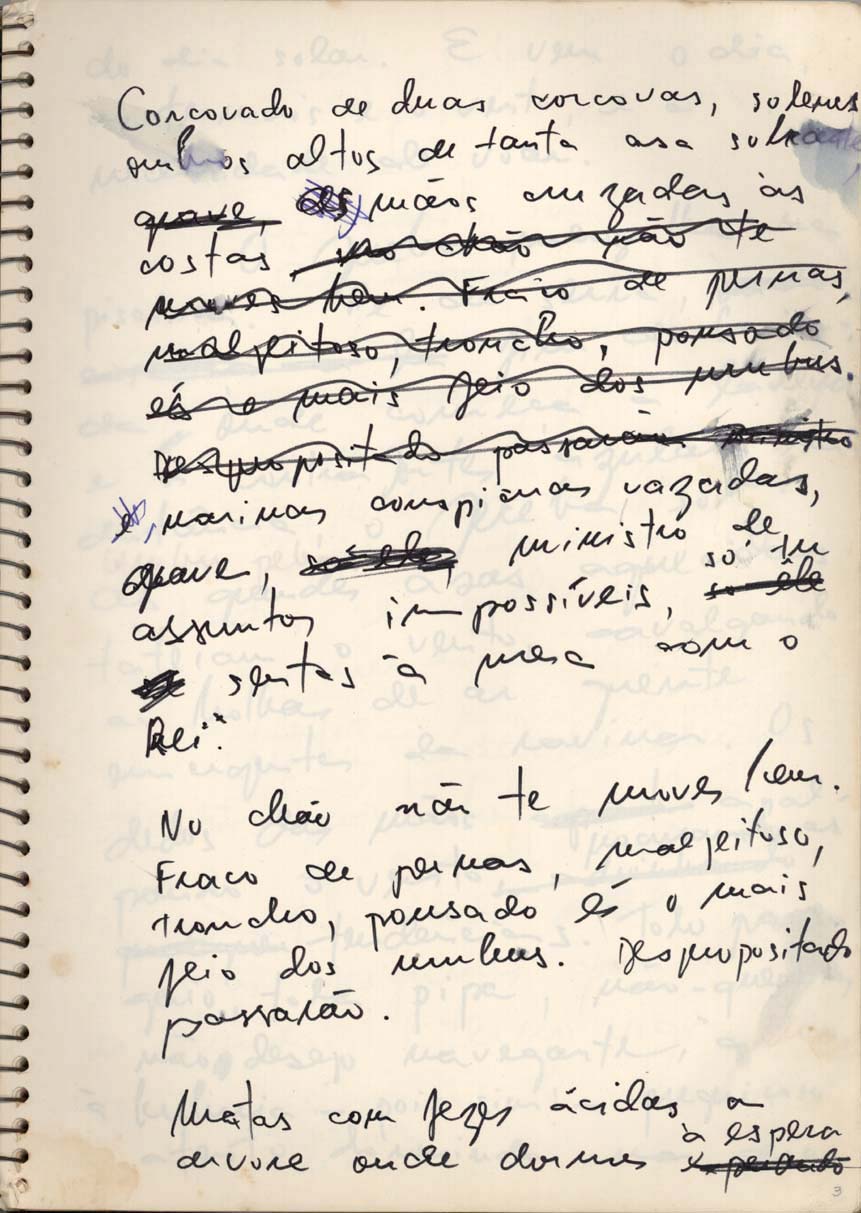 Corcovado de duas corcovas, solenes
ombros altos de tanta asa sobrante,
grave, mãos cruzadas às
costas, no chão não te
moves bem. Fraco de pernas,
maljeitoso, troncho, pousado
és o mais feio dos urubus.
Despropositado passarão ministro
e, narinas conspícuas vazadas,
grave, só ele, ministro de
assuntos impossíveis, só tu
só êle
sentas à mesa com o
Rei".
No chão não te moves bem.
Fraco de pernas, maljeitoso,
troncho, pousado és o mais
feio dos urubus. Despropositado
passarão.
Matas com fezes ácidas a
árvore onde dormes à espera
esperando
3